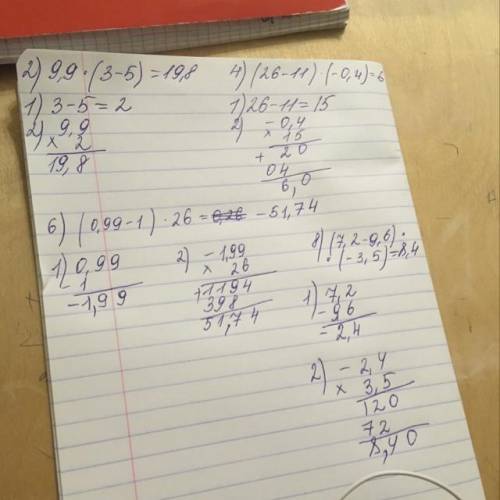 2) 9,9 · (3-5) = 19,8
1) 3-5 = 2
2) 9,9
× 2
19,8
4) (26-11) · (-0,4) = 6
1) 26-11 = 15
2) -0,4
× 15
+ 20
04
6,0
6) (0,99-1) · 26 = 0,26 -51,74
1) 0,99
- 1
-1,99
2) -1,99
× 26
+1194
398
51,74
8) (7,2-9,6) ·
· (-3,5) = 8,4
1) 7,2
- 96
-2,4
2) - 2,4
× 3,5
120
72
8,40